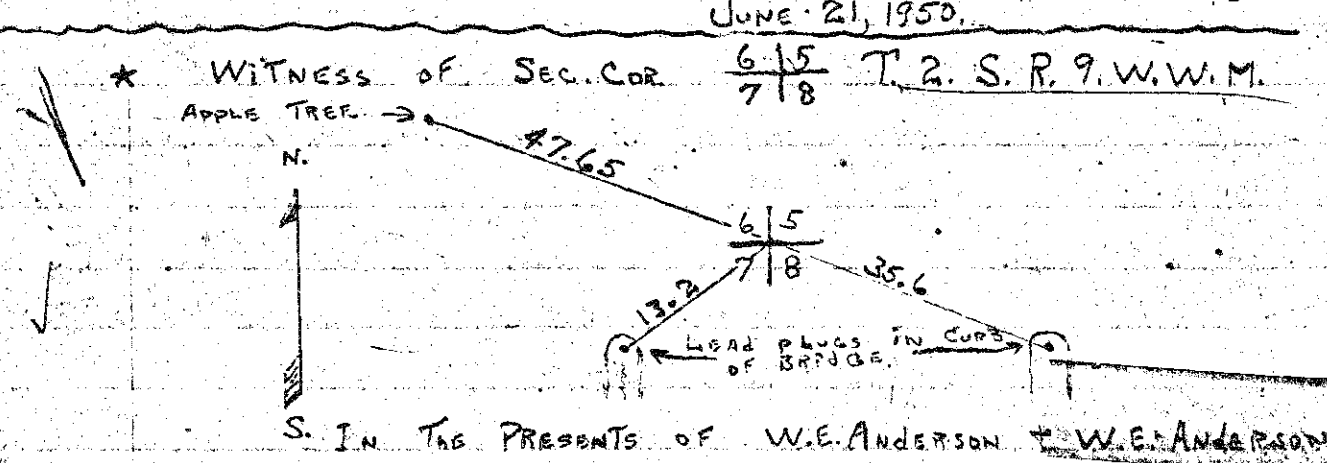 JUNE. 21, 1950.
* WITNESS OF SEC. COR. 6 5 T. 2. S. R. 9. W. W. M.
7 8
APPLE TREE →
N.
47.65
6 5
7 8
13.2
35.6
LEAD PLUGS IN CURB
OF BRIDGE.
S. IN THE PRESENTS OF W.E. ANDERSON + W.E. ANDERSON